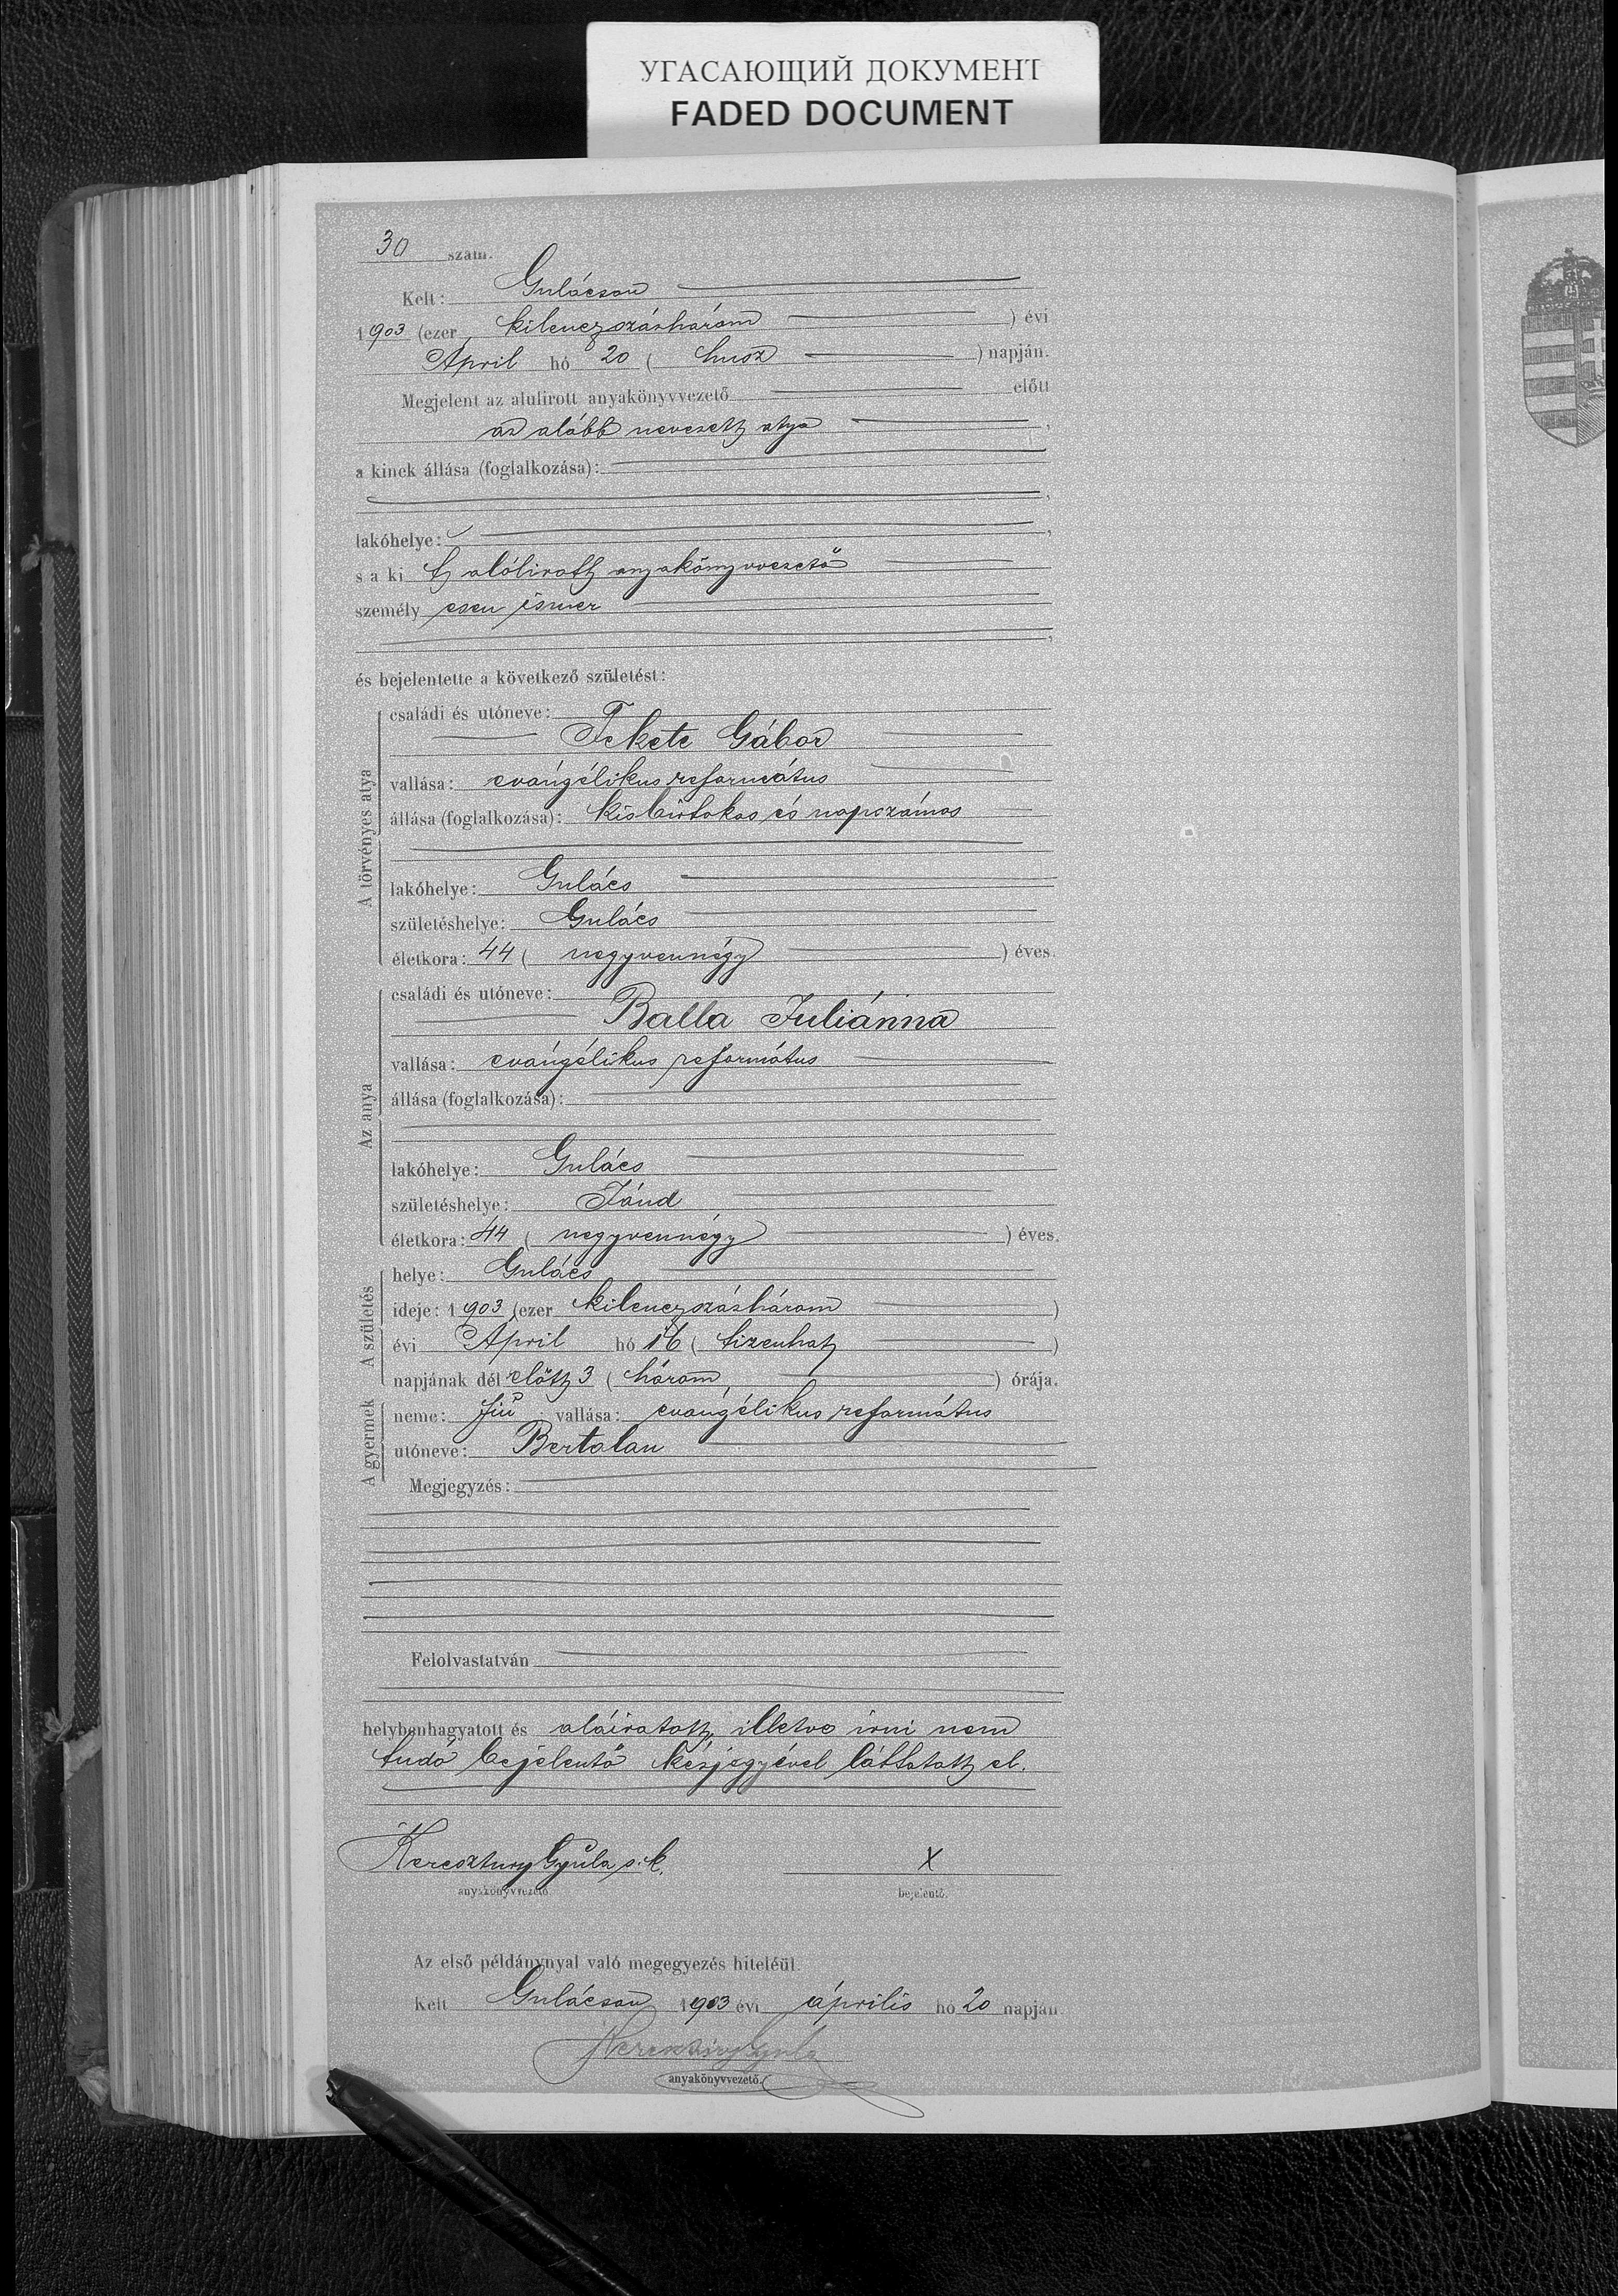 УГАСАЮЩИЙ ДОКУМЕНТ
FADED DOCUMENT
30 szám.
Kelt: Gulácson
1903 (ezer kilenczszázhárom ) évi
April hó 20 ( husz ) napján.
Megjelent az alulirott anyakönyvvezető előtt
az alább nevezett atya ,
a kinek állása (foglalkozása):
,
lakóhelye: ,
s a ki alólirott anyakönyvvezető
személy esen ismer
,
és bejelentette a következő születést:
A törvényes atya
családi és utóneve:
Fekete Gábor
vallása: evángélikus református
állása (foglalkozása): kisbirtokos és napszámos
lakóhelye: Gulács
születéshelye: Gulács
életkora: 44 ( negyvennégy ) éves.
Az anya
családi és utóneve:
Balla Juliánna
vallása: evángélikus református
állása (foglalkozása):
lakóhelye: Gulács
születéshelye: Jánd
életkora: 44 ( negyvennégy ) éves.
A születés
helye: Gulács
ideje: 1903 (ezer kilenczszázhárom )
évi April hó 16 ( tizenhat )
napjának dél előtt 3 ( három ) órája.
A gyermek
neme: fiú vallása: evangélikus református
utóneve: Bertalan
Megjegyzés:
Felolvastatván
helybenhagyatott és aláiratott, illetve irni nem
tudó bejelentő kézjegyével láttatott el.
Keresztury Gyula s. k. X
anyakönyvvezető. bejelentő.
Az első példánynyal való megegyezés hiteléül.
Kelt Gulácson 1903 évi április hó 20 napján.
Keresztury Gyula
anyakönyvvezető.